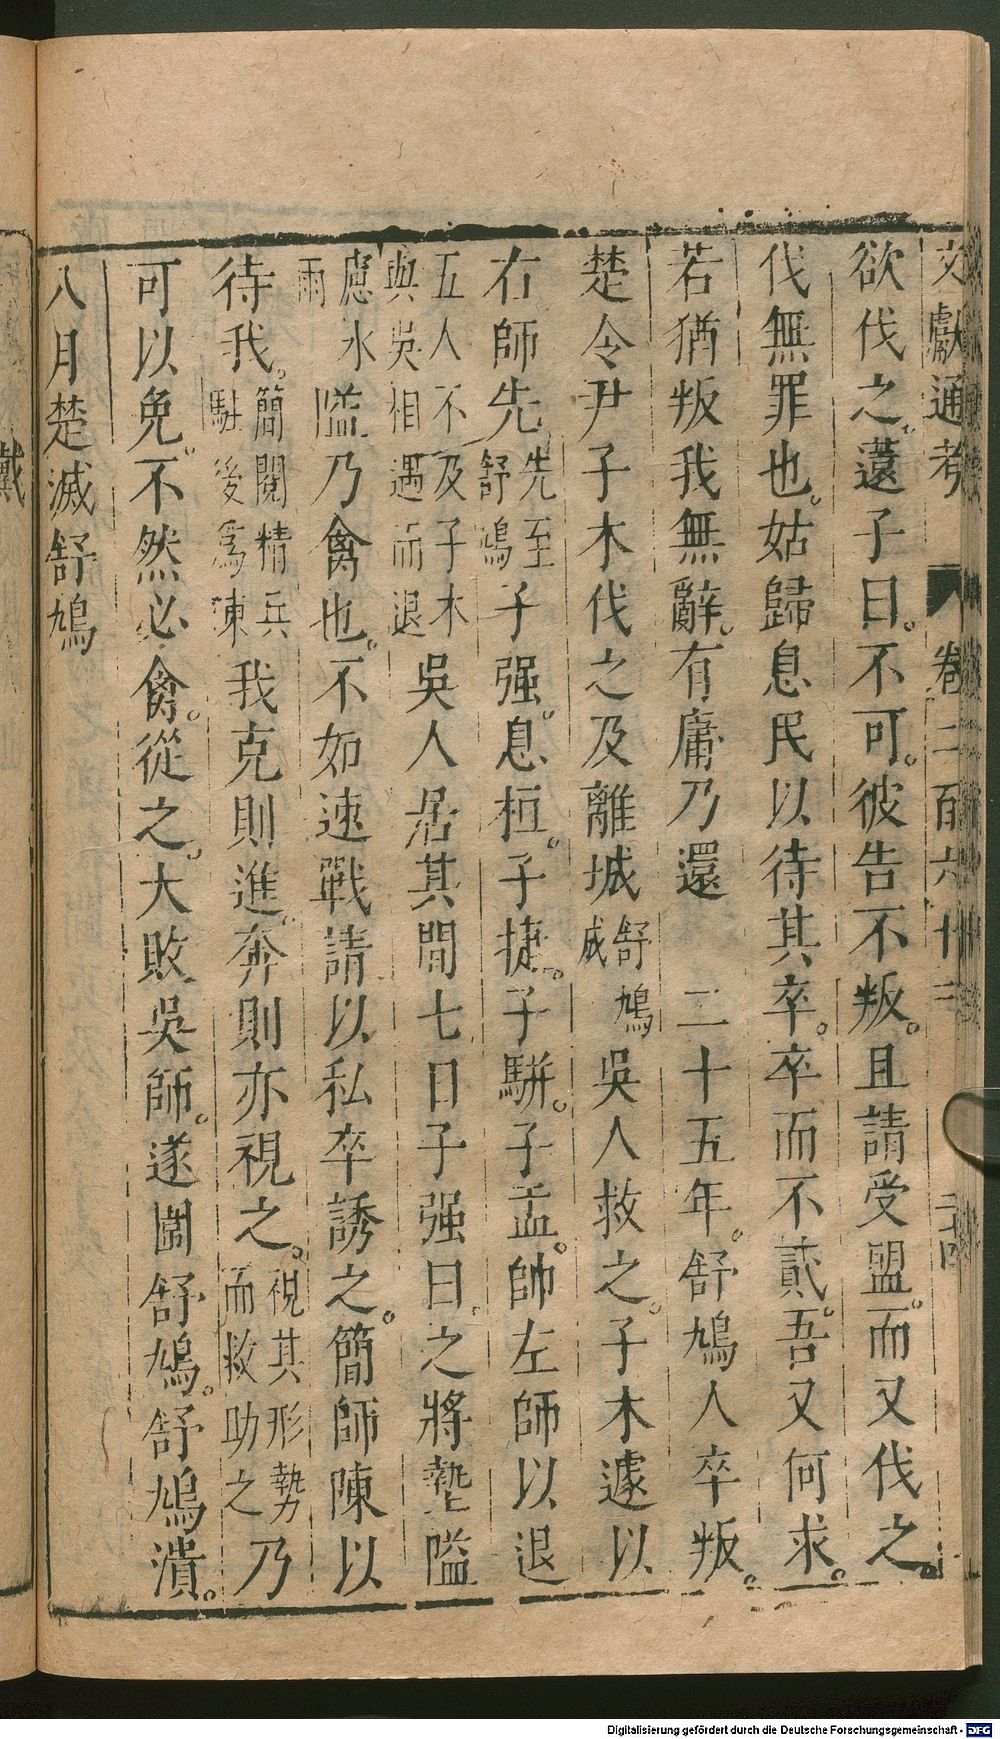 文獻通考 卷二百六十三 二十四
欲伐之。薳子曰。不可。彼告不叛。且請受盟。而又伐之。
伐無罪也。姑歸息民以待其卒。卒而不貳。吾又何求。
若猶叛我無辭。有庸乃還 二十五年。舒鳩人卒叛。
楚令尹子木伐之及離城舒鳩城吳人救之。子木遽以
右師先先至舒鳩子强。息桓。子捷。子駢。子盂。帥左師以退
五人不及子木與吳相遇而退吳人居其間七日子强曰。之將墊隘
慮水雨隘乃禽也。不如速戰請以私卒誘之。簡師陳以
待我。簡閱精兵駐後爲陳我克則進。奔則亦視之。視其形勢而救助之乃
可以免。不然必禽。從之。大敗吳師。遂圍舒鳩。舒鳩潰。
八月楚滅舒鳩
戴
Digitalisierung gefördert durch die Deutsche Forschungsgemeinschaft - DFG